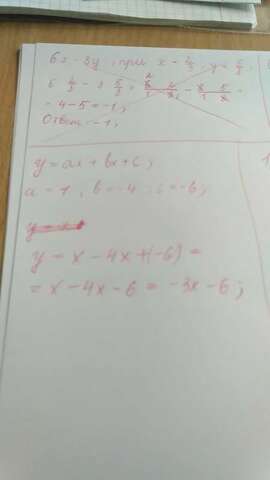 6x - 3y, при x = 2/3, y = 5/3.
6 · 2/3 - 3 · 5/3 =
= 4 - 5 = -1;
Ответ: -1;
y = ax + bx + c;
a = 1, b = -4, c = -6;
y = x - 4x + (-6) =
= x - 4x - 6 = -3x - 6;